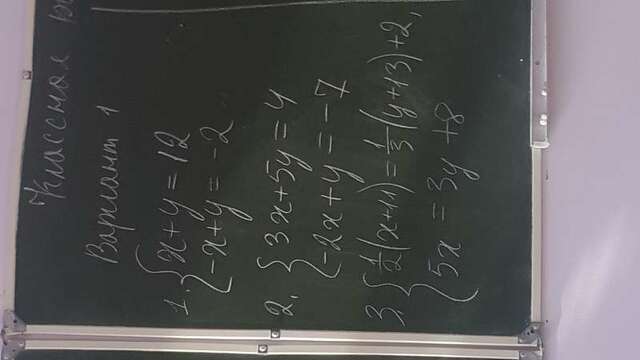 Классная
Вариант 1
1. { x+y=12
-x+y= -2
2. { 3x+5y=4
-2x+y=-7
3. { 1/2(x+11)=1/3(y+13)+2,
5x=3y+8